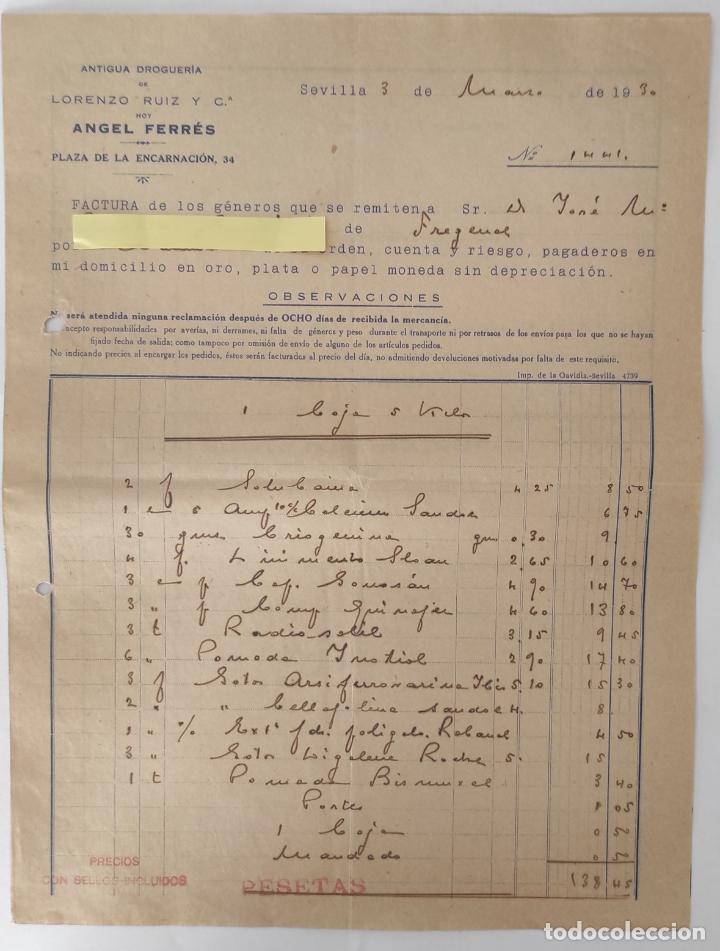 ANTIGUA DROGUERÍA
DE
LORENZO RUIZ Y C.ª
HOY
ANGEL FERRÉS
PLAZA DE LA ENCARNACIÓN, 34
Sevilla 3 de Marzo de 1930
Nº 1441.
FACTURA de los géneros que se remiten a Sr. D José Mª
de Fregenal
po rden, cuenta y riesgo, pagaderos en
mi domicilio en oro, plata o papel moneda sin depreciación.
OBSERVACIONES
No será atendida ninguna reclamación después de OCHO días de recibida la mercancía.
acepto responsabilidades por averías, ni derrames, ni falta de géneros y peso durante el transporte ni por retrasos de los envíos para los que no se hayan
fijado fecha de salida; como tampoco por omisión de envío de alguno de los artículos pedidos.
No indicando precios al encargar los pedidos, éstos serán facturados al precio del día, no admitiendo devoluciones motivadas por falta de este requisito.
Imp. de la Gavidia.-Sevilla 4739
1 Caja 5 Kilos
2 f 4 25 8 50
1 c 5 Amp 10% Calcium Sandoz 6 75
30 gms Criogenina gm 0,30 9
4 f. Linimento Sloan 2,65 10 60
3 c p Cap. Gonosán 4 90 14 70
3 " p Comp 4 60 13 80
3 t 3,15 9 45
6 " Pomada Inotiol 2 90 17 40
3 f Gotas Arsiferronarina Ibis 5,10 15 30
2 " " Sandoz 4. 8
1 " % 4 50
3 " Gotas Digalene Roche 5. 15
1 t Pomada 3 40
Portes 1 05
1 Caja 0 50
Mandado 0 50
138 45
PRECIOS
CON SELLOS INCLUIDOS
PESETAS
todocoleccion